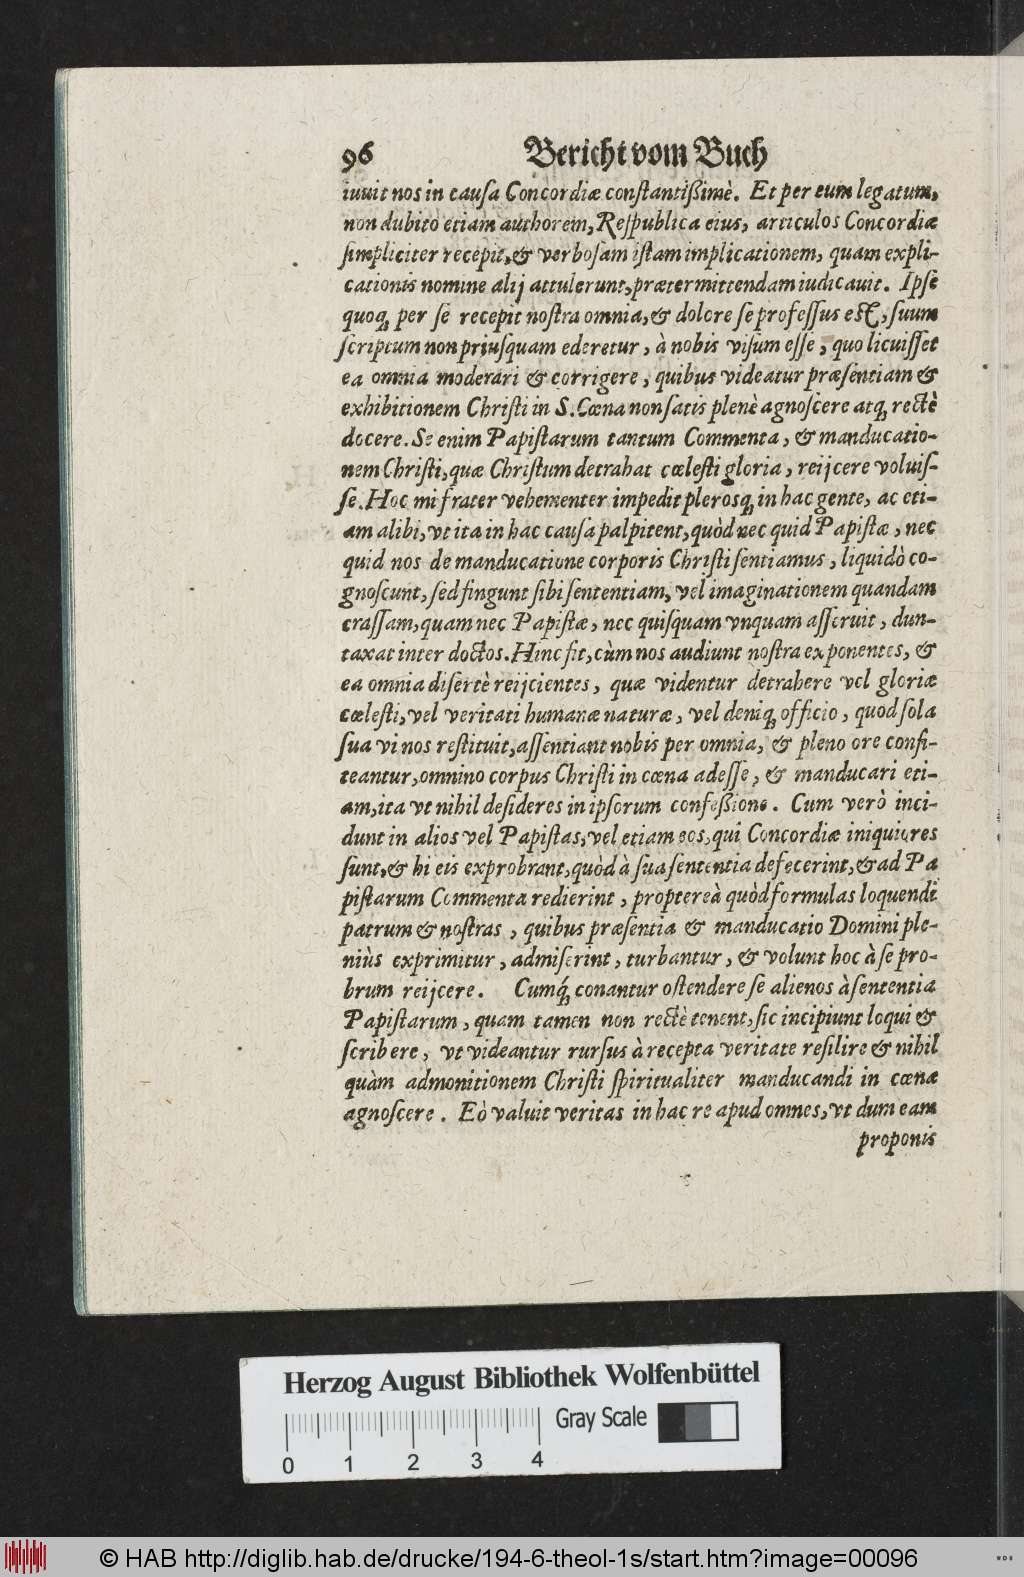 96 Bericht vom Buch
iuuit nos in causa Concordiæ constantißimè. Et per eum legatum,
non dubito etiam authorem, Respublica eius, articulos Concordiæ
simpliciter recepit, & verbosam istam implicationem, quam expli-
cationis nomine alij attulerunt, prætermittendam iudicauit. Ipse
quoq; per se recepit nostra omnia, & dolore se professus est, suum
scriptum non priùsquam ederetur, à nobis visum esse, quo licuisset
ea omnia moderari & corrigere, quibus videatur præsentiam &
exhibitionem Christi in S. Cœna non satis plenè agnoscere atq; rectè
docere. Se enim Papistarum tantum Commenta, & manducatio-
nem Christi, quæ Christum detrahat cœlesti gloria, reijcere voluis-
se. Hoc mi frater vehementer impedit plerosq; in hac gente, ac eti-
am alibi, vt ita in hac causa palpitent, quòd nec quid Papistæ, nec
quid nos de manducatione corporis Christi sentiamus, liquidò co-
gnoscunt, sed fingunt sibi sententiam, vel imaginationem quandam
crassam, quam nec Papistæ, nec quisquam vnquam asseruit, dun-
taxat inter doctos. Hinc fit, cùm nos audiunt nostra exponentes, &
ea omnia disertè reijcientes, quæ videntur detrahere vel gloriæ
cœlesti, vel veritati humanæ naturæ, vel deniq; officio, quod sola
sua vi nos restituit, assentiant nobis per omnia, & pleno ore confi-
teantur, omnino corpus Christi in cœna adesse, & manducari eti-
am, ita vt nihil desideres in ipsorum confeßione. Cum verò inci-
dunt in alios vel Papistas, vel etiam eos, qui Concordiæ iniquiores
sunt, & hi eis exprobrant, quòd à sua sententia defecerint, & ad Pa
pistarum Commenta redierint, proptereà quòd formulas loquendi
patrum & nostras, quibus præsentia & manducatio Domini ple-
niùs exprimitur, admiserint, turbantur, & volunt hoc à se pro-
brum reijcere. Cumq́; conantur ostendere se alienos à sententia
Papistarum, quam tamen non rectè tenent, sic incipiunt loqui &
scribere, vt videantur rursus à recepta veritate resilire & nihil
quàm admonitionem Christi spiritualiter manducandi in cœna
agnoscere. Eò valuit veritas in hac re apud omnes, vt dum eam
proponis
Herzog August Bibliothek Wolfenbüttel
Gray Scale
0 1 2 3 4
© HAB http://diglib.hab.de/drucke/194-6-theol-1s/start.htm?image=00096